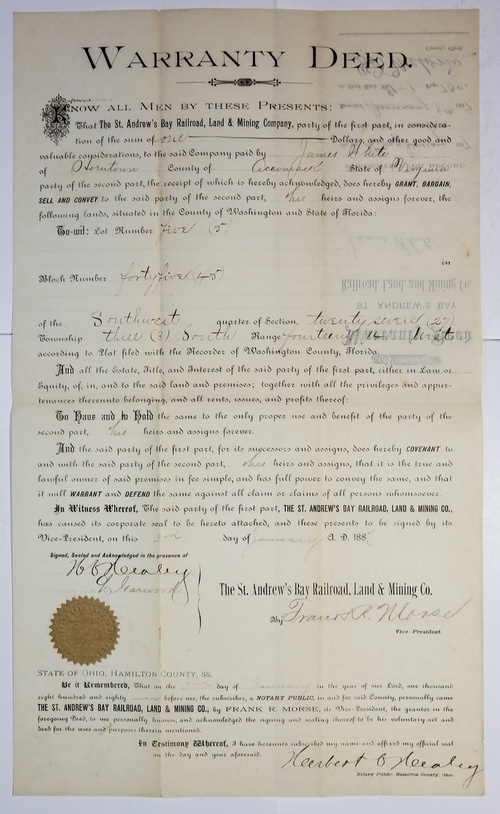 WARRANTY DEED.
KNOW ALL MEN BY THESE PRESENTS:
That The St. Andrew's Bay Railroad, Land & Mining Company, party of the first part, in considera-
tion of the sum of one Dollars, and other good and
valuable considerations, to the said Company paid by James White
of County of Accomack State of Virginia
party of the second part, the receipt of which is hereby acknowledged, does hereby GRANT, BARGAIN,
SELL AND CONVEY to the said party of the second part, his heirs and assigns forever, the
following lands, situated in the County of Washington and State of Florida:
To-wit: Lot Number five (5)
in
Block Number forty five (45)
of the Southwest quarter of Section, twenty seven (27)
Township three (3) South Range fourteen 14 West
according to Plat filed with the Recorder of Washington County, Florida.
And all the Estate, Title, and Interest of the said party of the first part, either in Law or
Equity, of, in, and to the said land and premises; together with all the privileges and appur-
tenances thereunto belonging, and all rents, issues, and profits thereof:
To Have and to Hold the same to the only proper use and benefit of the party of the
second part, his heirs and assigns forever.
And the said party of the first part, for its successors and assigns, does hereby COVENANT to
and with the said party of the second part, his heirs and assigns, that it is the true and
lawful owner of said premises in fee simple, and has full power to convey the same, and that
it will WARRANT and DEFEND the same against all claim or claims of all persons whomsoever.
In Witness Whereof, The said party of the first part, THE ST. ANDREW'S BAY RAILROAD, LAND & MINING CO.,
has caused its corporate seal to be hereto attached, and these presents to be signed by its
Vice-President, on this 3rd day of January A. D. 188
Signed, Sealed and Acknowledged in the presence of
H B Healey
The St. Andrew's Bay Railroad, Land & Mining Co.
By Frank R. Morse
Vice-President.
STATE OF OHIO, HAMILTON COUNTY, ss.
Be it Remembered, That on the day of January in the year of our Lord, one thousand
eight hundred and eighty before me, the subscriber, a NOTARY PUBLIC, in and for said County, personally came
THE ST. ANDREW'S BAY RAILROAD, LAND & MINING CO., by FRANK R. MORSE, its Vice-President, the grantor in the
foregoing Deed, to me personally known, and acknowledged the signing and sealing thereof to be his voluntary act and
deed for the uses and purposes therein mentioned.
In Testimony Whereof, I have hereunto subscribed my name and affixed my official seal
on the day and year aforesaid.
Herbert B Healey
Notary Public, Hamilton County, Ohio